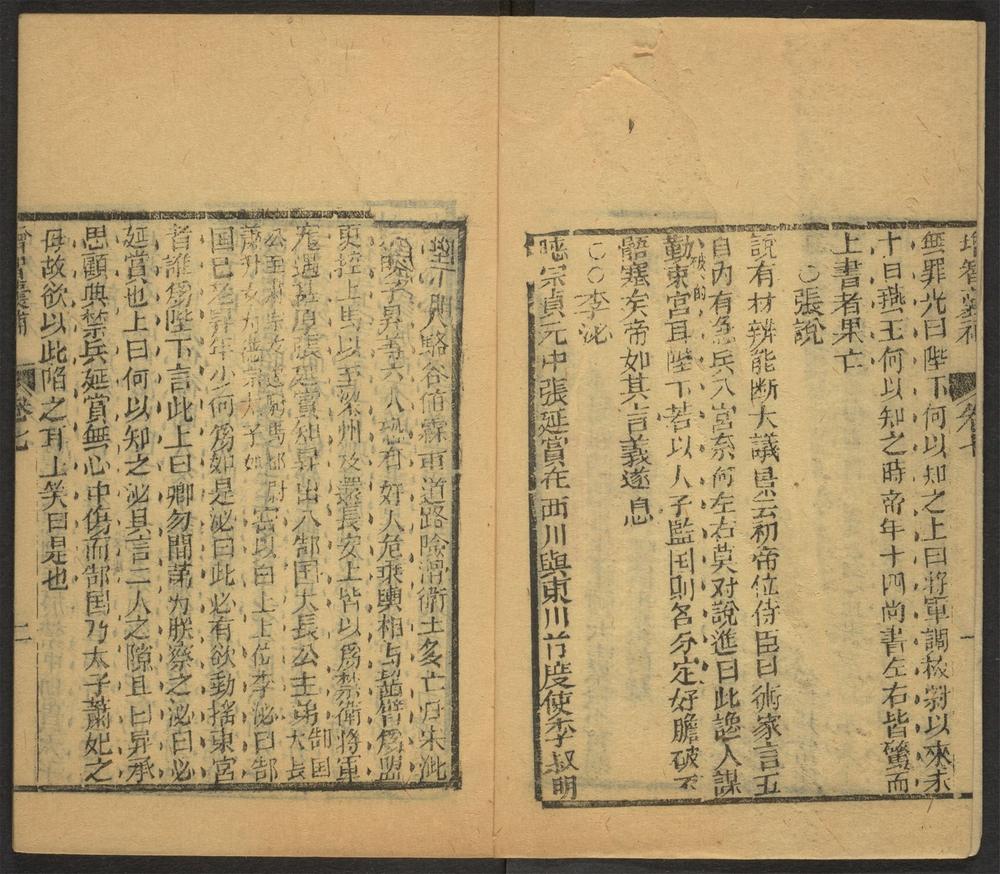 增智囊補 卷七 一
無罪光曰陛下何以知之上曰將軍調校尉以來未
十日燕王何以知之時帝年十四尚書左右皆驚而
上書者果亡
○張說
說有材辨能断大議景云初帝位侍臣曰術家言五
日内有急兵入宮奈何左右莫对說進曰此讒人謀
動東宮耳陛下若以人子監国則名分定奸膽破不
破的
語塞矣帝如其言義遂息
○○李泌
宗貞元中張延賞在西川與東川節度使李叔明
上入駱谷値霖雨道路險滑衛士多亡歸朱泚
叔明子昇等六人恐有奸人危乘輿相与齧臂爲盟
更控上馬以至梁州及還長安上皆以爲禁衛將軍
寵遇甚厚張延賞知昇出入郜国大長公主第郜国大長
公主肅宗女 駙馬都尉
蕭升女为德宗太子妃
密以白上上謂李泌曰郜
国已老昇年少何爲如是泌曰此必有欲動搖東宮
者誰爲陛下言此上曰卿勿問第为朕察之泌曰必
延賞也上曰何以知之泌具言二人之隙且曰昇承
思顧典禁兵延賞無心中傷而郜国乃太子蕭妃之
母故欲以此陷之耳上笑曰是也
增智囊補 卷七 二